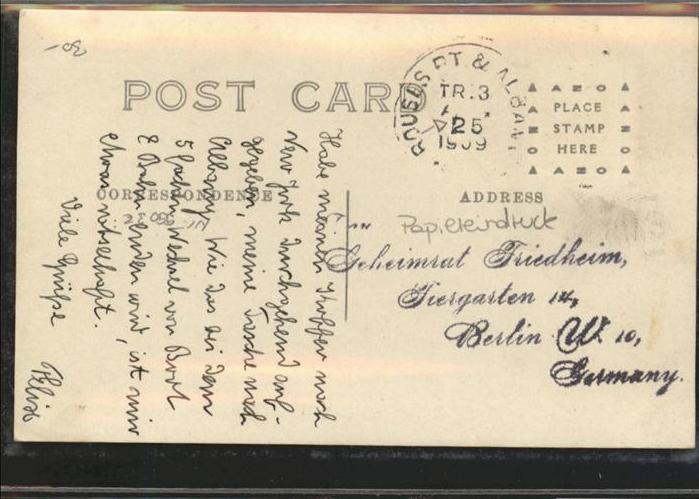 30-
POST CARD
ROUSES PT. & ALBANY
TR. 3
25
1909
AZO
PLACE
STAMP
HERE
AZO
CORRESPONDENCE
ADDRESS
Papiereindruck
Geheimrat Friedheim,
Tiergarten
Berlin W. 10,
Germany.
Habe meinen Koffer nach
New York durchgehend auf-
gegeben, meine Tasche nach
Albany. Wie das bei dem
5 fachen Wechsel von Boot
& Bahn enden wird, ist mir
etwas rätselhaft.
Viele Grüße